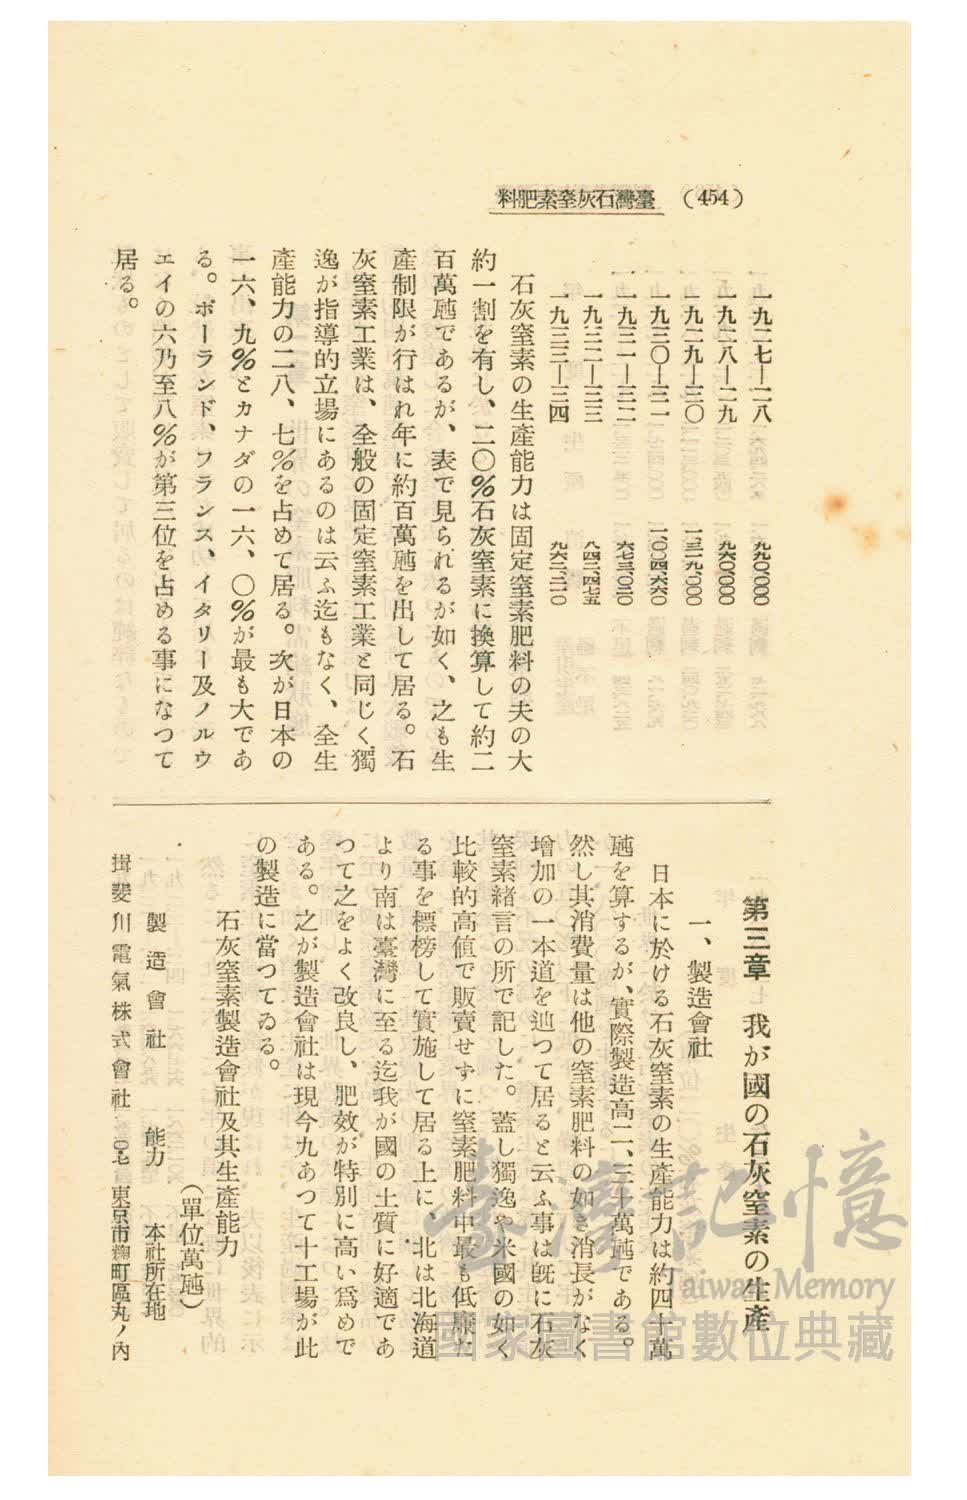 (454) 臺灣石灰窒素肥料
一九二七—二八 九九〇、〇〇〇
一九二八—二九 九六〇、〇〇〇
一九二九—三〇 一三一九、〇〇〇
一九三〇—三一 一、〇〇四、六六〇
一九三一—三二 六七三、〇二〇
一九三二—三三 八四二、四七五
一九三三—三四 九六二、二一〇
石灰窒素の生產能力は固定窒素肥料の夫の大
約一割を有し、二〇％石灰窒素に換算して約二
百萬瓲であるが、表で見られるが如く、之も生
產制限が行はれ年に約百萬瓲を出して居る。石
灰窒素工業は、全般の固定窒素工業と同じく獨
逸が指導的立場にあるのは云ふ迄もなく、全生
產能力の二八、七％を占めて居る。次が日本の
一六、九％とカナダの一六、〇％が最も大であ
る。ポーランド、フランス、イタリー及ノルウ
エイの六乃至八％が第三位を占める事になつて
居る。
第三章 我が國の石灰窒素の生產
一、製造會社
日本に於ける石灰窒素の生產能力は約四十萬
瓲を算するが、實際製造高二、三十萬瓲である。
然し其消費量は他の窒素肥料の如き消長がなく
增加の一本道を辿つて居ると云ふ事は旣に石灰
窒素緖言の所で記した。蓋し獨逸や米國の如く
比較的高値で販賣せずに窒素肥料中最も低廉た
る事を標榜して實施して居る上に、北は北海道
より南は臺灣に至る迄我が國の土質に好適であ
つて之をよく改良し、肥效が特別に高い爲めで
ある。之が製造會社は現今九あつて十工場が此
の製造に當つてゐる。
石灰窒素製造會社及其生產能力
(單位萬瓲)
製造會社 能力 本社所在地
揖斐川電氣株式會社 〇・七 東京市麴町區丸ノ內
臺灣記憶
Taiwan Memory
國家圖書館數位典藏